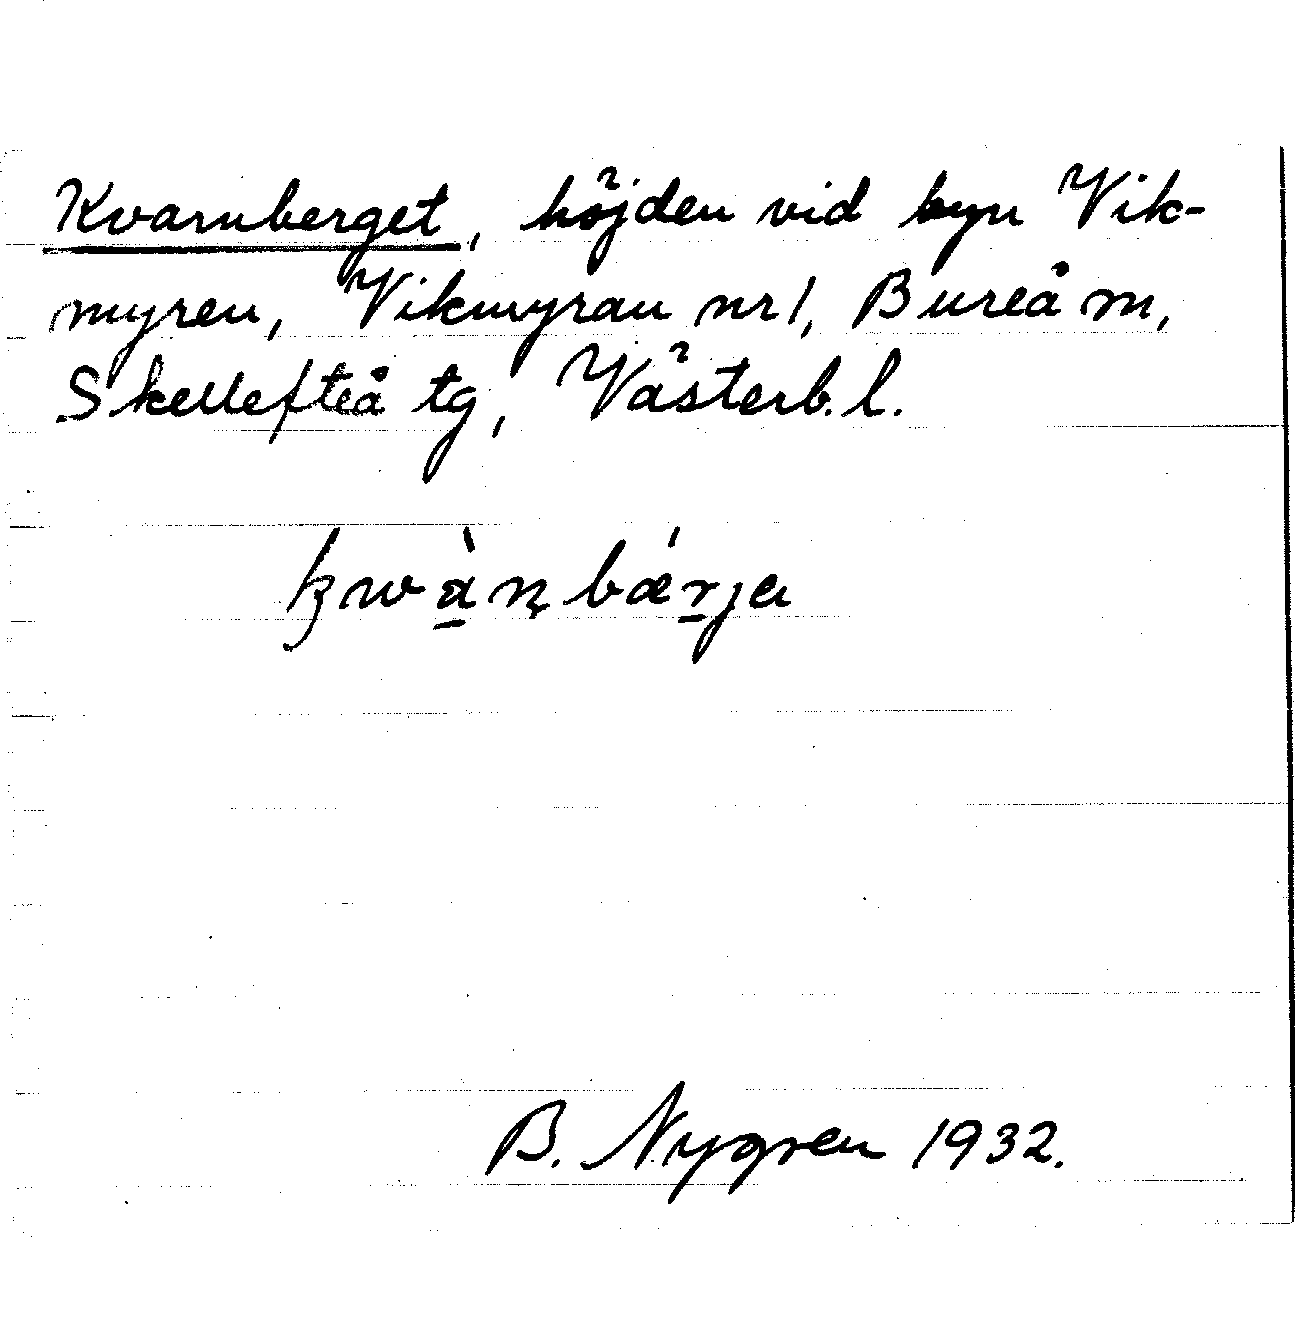 Kvarnberget, höjden vid byn Vik-
myren, Vikmyran nr 1, Bureå m,
Skellefteå tg, Västerb. l.
kwà̱n̨bǽṟja
B. Nygren 1932.